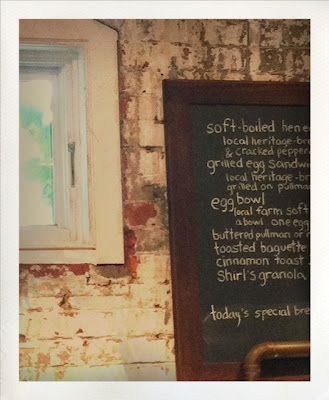 soft-boiled hen e
local heritage-br
& cracked pepper
grilled egg sandwi
local heritage-b
grilled on pullma
egg bowl
local farm soft
a bowl one egg
buttered pullman or r
toasted baguette
cinnamon toast
Shirl's granola
today's special bre